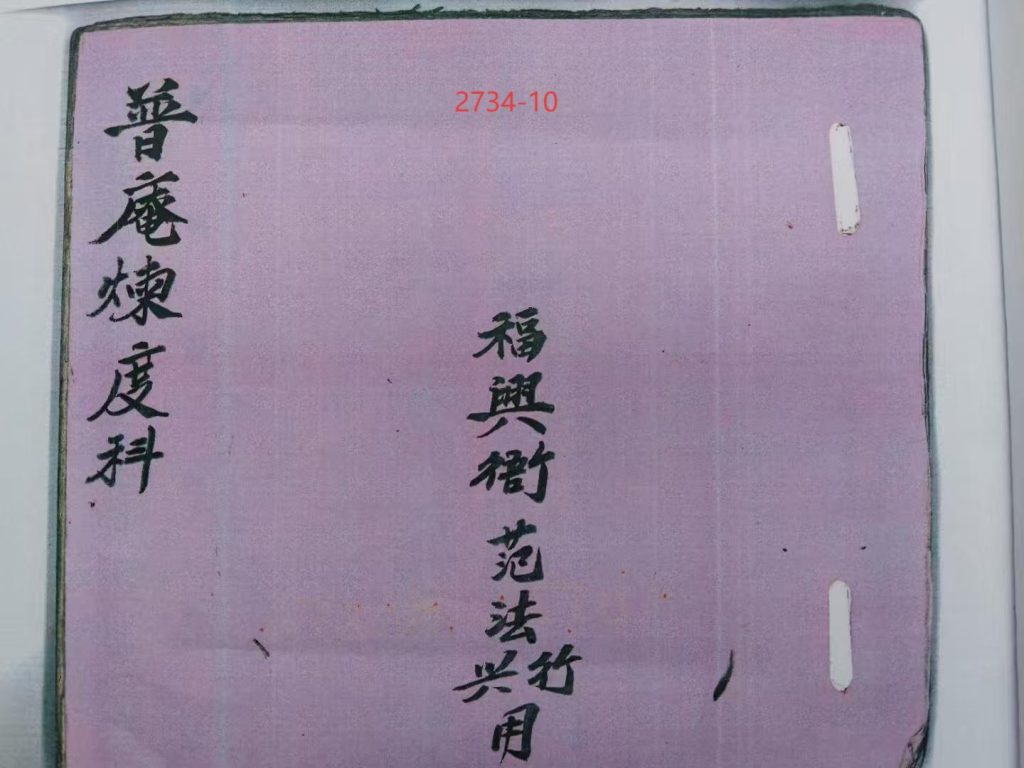 2734-10
福興衙范法竹兴用
普庵煉度科